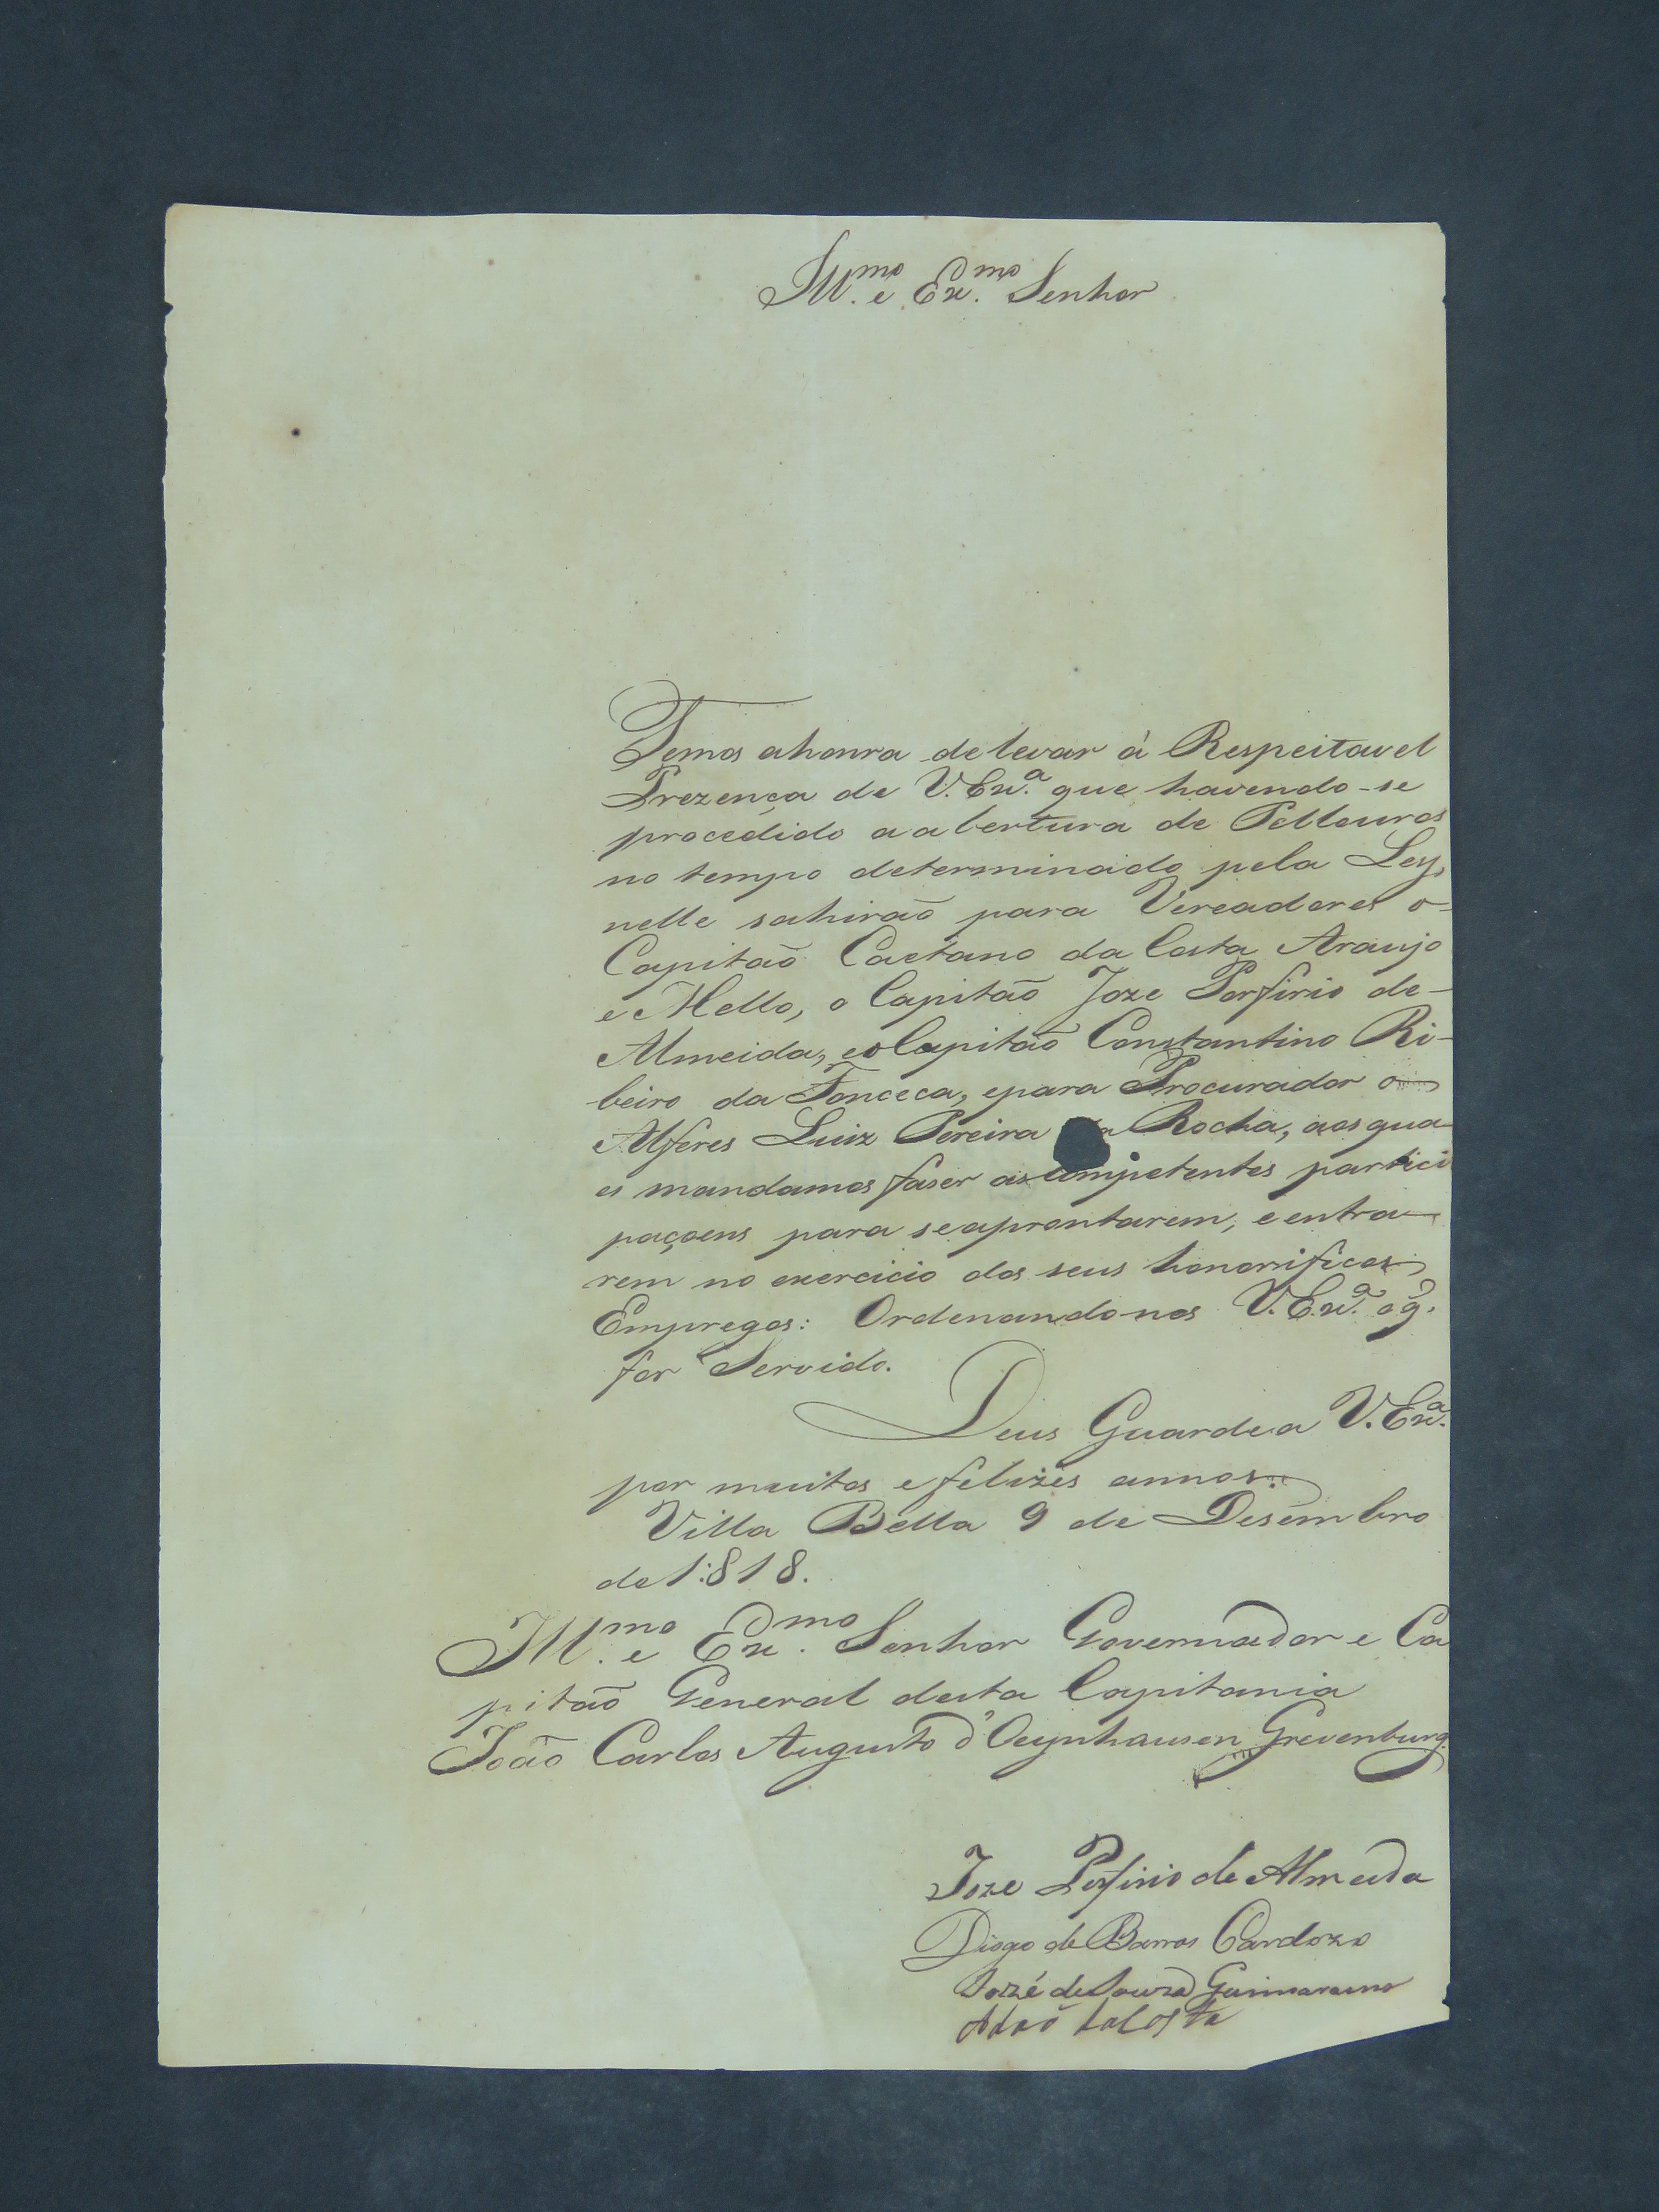 Ill.mo e Ex.mo Senhor
Temos ahonra delevar á Respeitavel
Prezença de V. Ex.a que havendo-se
procedido a abertura de Pellouros
no tempo determinado pela Ley,
nelle sahiraõ para Vereadores o-
Capitaõ Caetano da Costa Araujo
e Mello, o Capitaõ Joze Porfirio de-
Almeida, eo Capitaõ Constantino Ri-
beiro da Fonceca, epara Procurador o
Alferes Luiz Pereira da Rocha, aos qua
es mandamos faser as competentes partici
paçoens para seaprontarem, e entra
rem no exercicio dos seus honorificos
Empregos: Ordenando-nos V. Ex.a o q̃.
for Servido.
Deus Guarde a V. Ex.a
por muitos e felizes annos.
Villa Bella 9 de Desembro
de 1:818.
Ill.mo e Ex.mo Senhor Governador e Ca
pitaõ General desta Capitania
Joaõ Carlos Augusto d'Oeynhausen Grevenburg.
Joze Porfirio de Almeida
Diogo de Barros Cardozo
Jozé de Souza Guimaraens
Adaõ daCosta